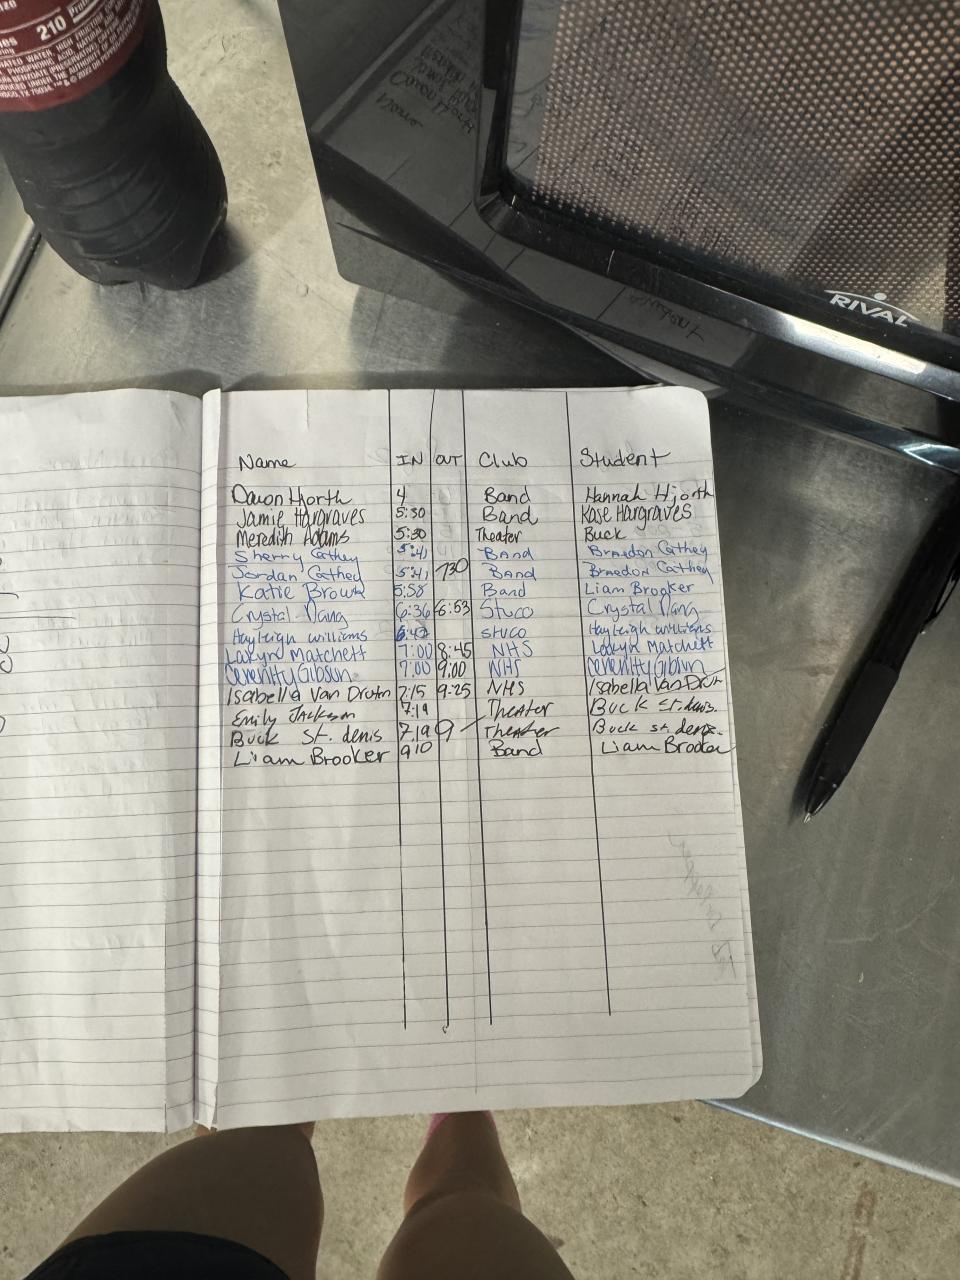 210
RIVAL
Name IN OUT Club Student
Davon Hjorth 4 Band Hannah Hjorth
Jamie Hargraves 5:30 Band Kase Hargraves
Meredith Adams 5:30 Theater Buck
Sherry Cathey 5:41 Band Braedon Cathey
Jordan Cathey 5:41 730 Band Braedon Cathey
Katie Brown 5:58 Band Liam Brooker
Crystal Vang 6:36 6:53 Stuco Crystal Vang
Hayleigh williams stuco Hayleigh williams
Matchett 7:00 8:45 NHS Matchett
Serenity Gibson 7:00 9:00 NHS Serenity Gibson
Isabella Van Drutn 7:15 9:25 NHS Isabella Van Drutn
Emily Jackson 7:19 Theater Buck St. denis.
Buck St. denis 7:19 9 Theater Buck st. denis.
Liam Brooker 910 Band Liam Brooker